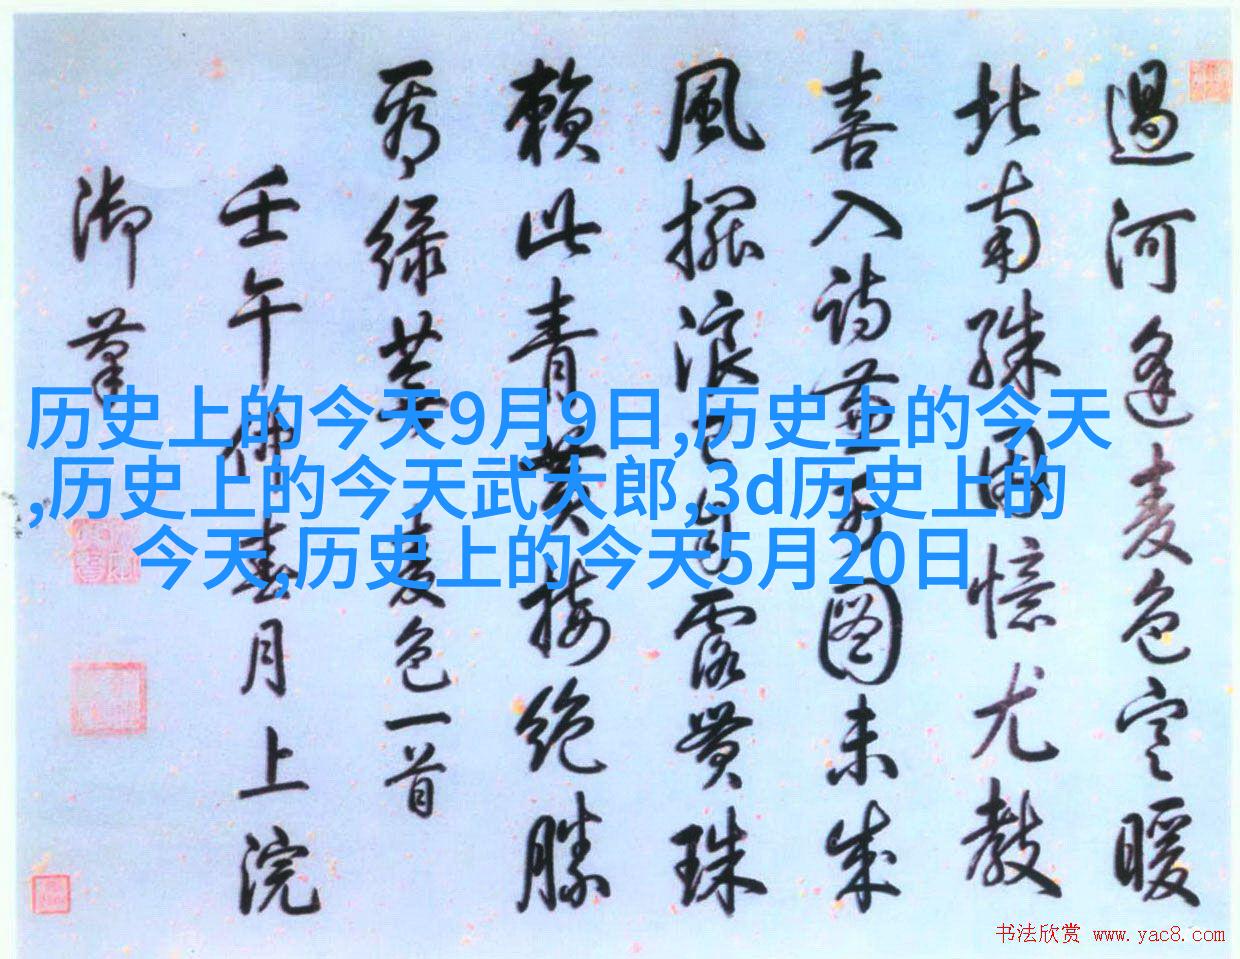 過河逢麦色寒暖
北南殊因憶尤教
喜入詩可圖未成
風擺浪已自露貫珠
賴此青黄接絶勝
緑麦色一首
壬午仲春月上浣
御筆
历史上的今天9月9日,历史上的今天
,历史上的今天武大郎,3d历史上的
今天,历史上的今天5月20日
书法欣赏 www.yac8.com